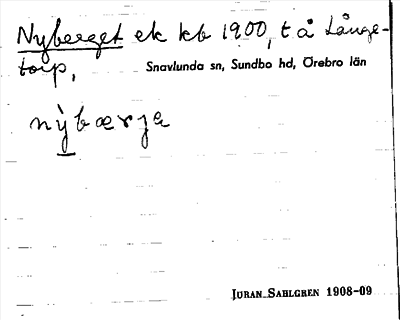 Nyberget ek kb 1900, t å Långe-
torp,
Snavlunda sn, Sundbo hd, Örebro län
nỳbærja
JÖRAN SAHLGREN 1908-09